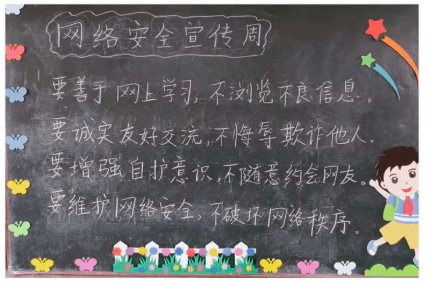 网络安全宣传周
要善于网上学习,不浏览不良信息。
要诚实友好交流,不侮辱欺诈他人.
要增强自护意识,不随意约会网友。
要维护网络安全,不破坏网络秩序。